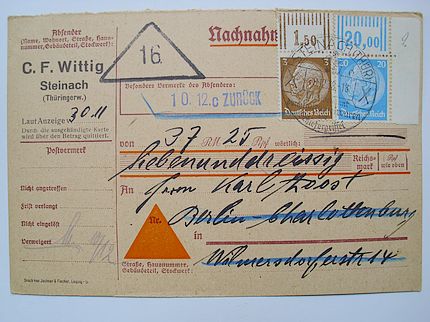 Absender
(Name, Wohnort, Straße, Haus-
nummer, Gebäudeteil, Stockwerk):
C. F. Wittig
Steinach
(Thüringerw.)
16.
Nachnahm
1,50
20,00
3
3
Deutsches Reich
20
20
Deutsches Reich
Besondere Vermerke des Absenders:
10.12.c ZURÜCK
Laut Anzeige
30 11
Durch die ausgehändigte Karte
wird über den Betrag quittiert.
Postvermerk
Nicht angetroffen
Frist verlangt
Nicht eingelöst
Verweigert
von 37 RM 25 Rpf wörtlich:
Siebenunddreissig
Reichs-
mark
Rpf
wie oben
An Herrn Karl
Berlin-Charlottenburg
Nr.
in
Wilmersdorferstr 14
Straße, Hausnummer,
Gebäudeteil, Stockwerk: